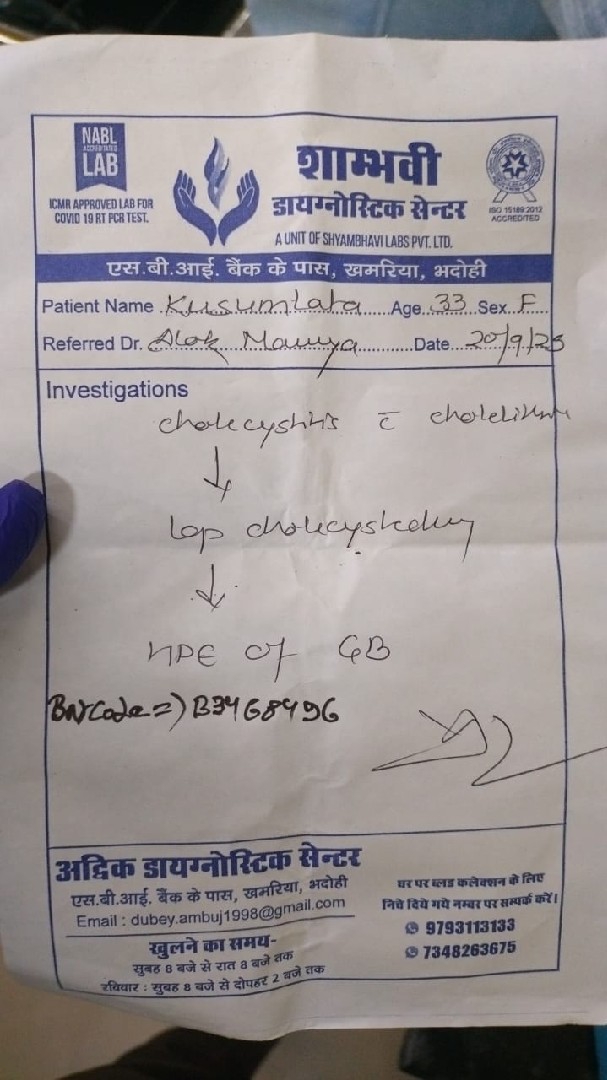 NABL
ACCREDITATED
LAB
ICMR APPROVED LAB FOR
COVID 19 RT PCR TEST.
शाम्भवी
डायग्नोस्टिक सेन्टर
A UNIT OF SHYAMBHAVI LABS PVT. LTD.
ISO 15189:2012
ACCREDITED
एस.बी.आई. बैंक के पास, खमरिया, भदोही
Patient Name Kusumlata Age 33 Sex F
Referred Dr. Alok Maurya Date 20/9/25
Investigations
cholecystitis c̄
↓
Lap
↓
HPE of GB
Bar Code =) B3468496
अद्विक डायग्नोस्टिक सेन्टर
एस.बी.आई. बैंक के पास, खमरिया, भदोही
Email : dubey.ambuj1998@gmail.com
खुलने का समय-
सुबह 8 बजे से रात 8 बजे तक
रविवार : सुबह 8 बजे से दोपहर 2 बजे तक
घर पर ब्लड कलेक्शन के लिए
निचे दिये गये नम्बर पर सम्पर्क करें।
9793113133
7348263675